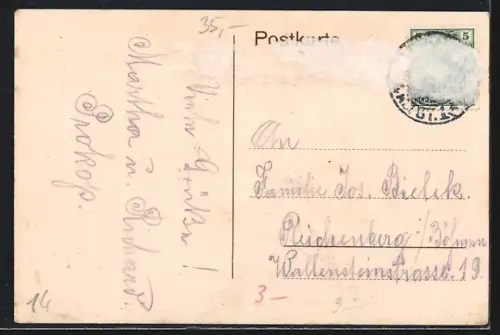 35,-
Postkarte
5
Viele Grüße!
Martha u. Richard
Prokop.
An
Familie Jos. Bielek.
Reichenberg i/Böhmen
Wallensteinstrasse 19.
14
3-